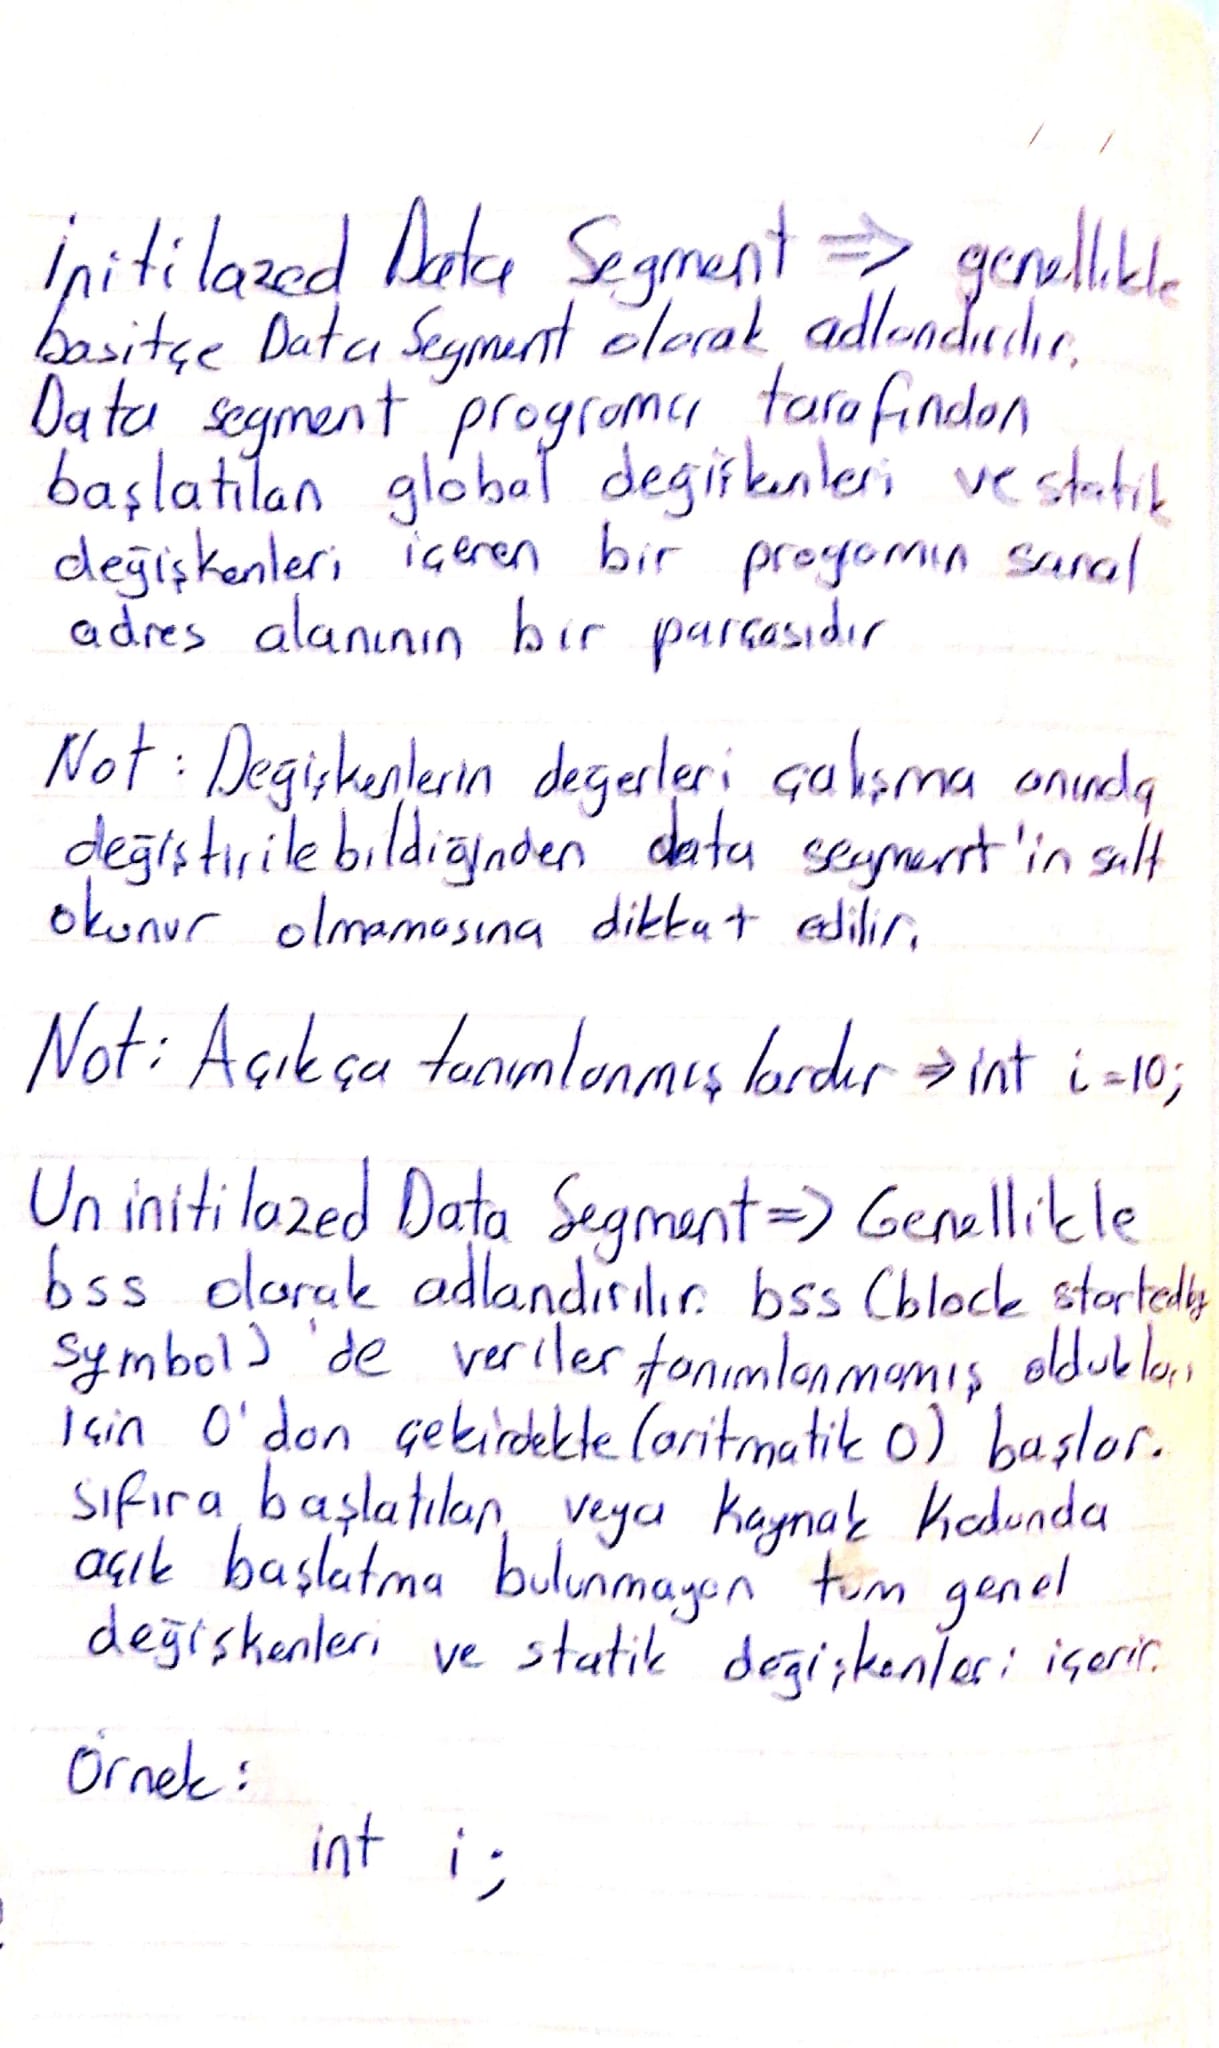 İnitilazed Data Segment => genellikle
basitçe Data Segment olarak adlandırılır.
Data segment programcı tarafından
başlatılan global değişkenleri ve statik
değişkenleri içeren bir progamın sanal
adres alanının bir parçasıdır
Not: Değişkenlerin değerleri çalışma anında
değiştirilebildiğinden data segment'in salt
okunur olmamasına dikkat edilir.
Not: Açıkça tanımlanmışlardır => int i=10;
Un initilazed Data Segment => Genellikle
bss olarak adlandırılır. bss (block started by
symbol) 'de veriler tanımlanmamış oldukları
için 0'dan çekirdekte (aritmatik 0) başlar.
sıfıra başlatılan veya kaynak kodunda
açık başlatma bulunmayan tüm genel
değişkenleri ve statik değişkenleri içerir.
Örnek:
int i;